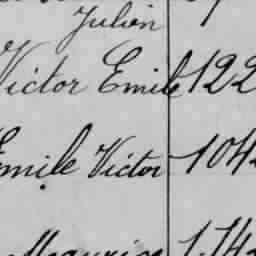 Julien
Victor Emile 122
Emile Victor 104
Maurice 1.14